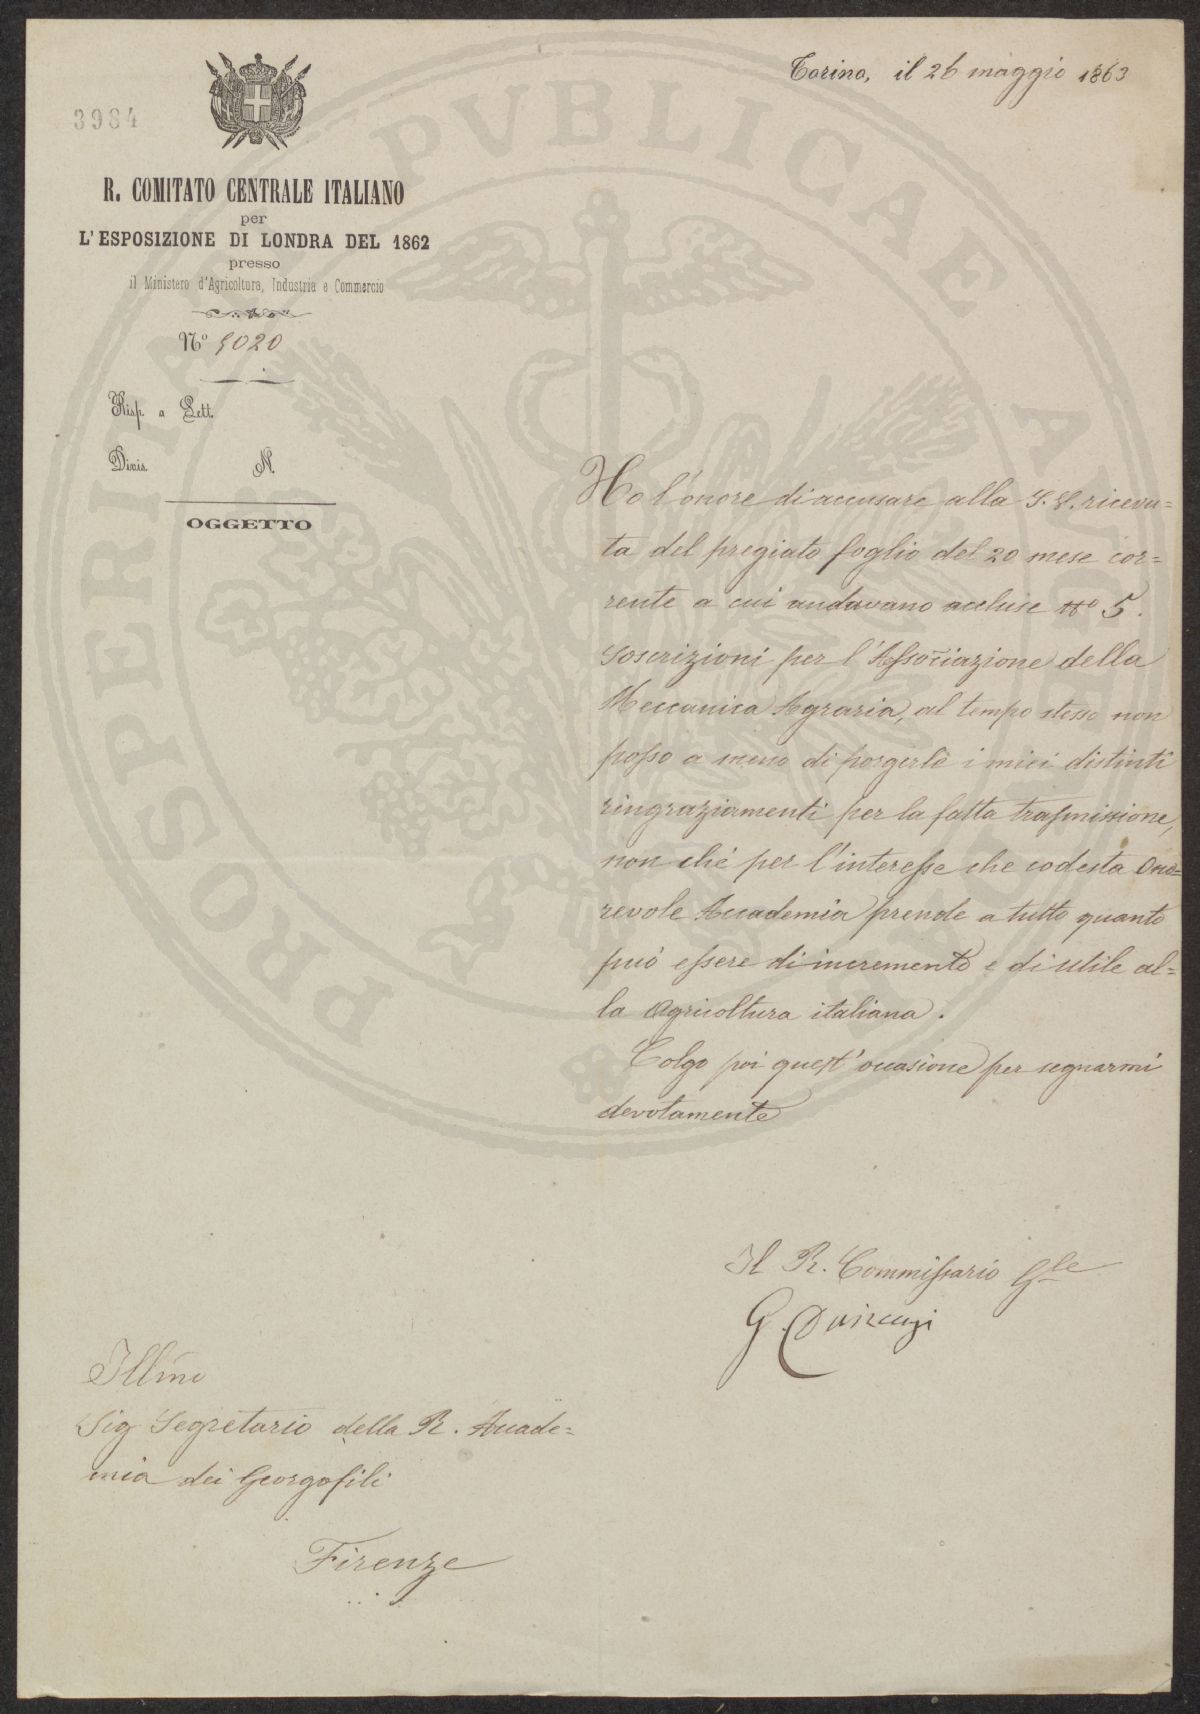 Torino, il 26 maggio 1863
3984
R. COMITATO CENTRALE ITALIANO
per
L'ESPOSIZIONE DI LONDRA DEL 1862
presso
il Ministero d'Agricoltura, Industria e Commercio
Nº 5020
Risp. a Lett.
Divis. N.
OGGETTO
Ho l'onore di accusare alla S. V. ricevu=
ta del pregiato foglio del 20 mese cor=
rente a cui andavano accluse Nº 5.
Soscrizioni per l'Associazione della
Meccanica Agraria, al tempo stesso non
posso a meno di porgerle i miei distinti
ringraziamenti per la fatta trasmissione,
non ché per l'interesse che codesta Ono=
revole Accademia prende a tutto quanto
può essere di incremento e di utile al=
la Agricoltura italiana.
Colgo poi quest'occasione per segnarmi
devotamente
Il R. Commissario Gle
G. Devincenzi
Illmo
Sig Segretario della R. Accade=
mia dei Georgofili
Firenze
PROSPERITATI PVBLICAE AVGENDAE